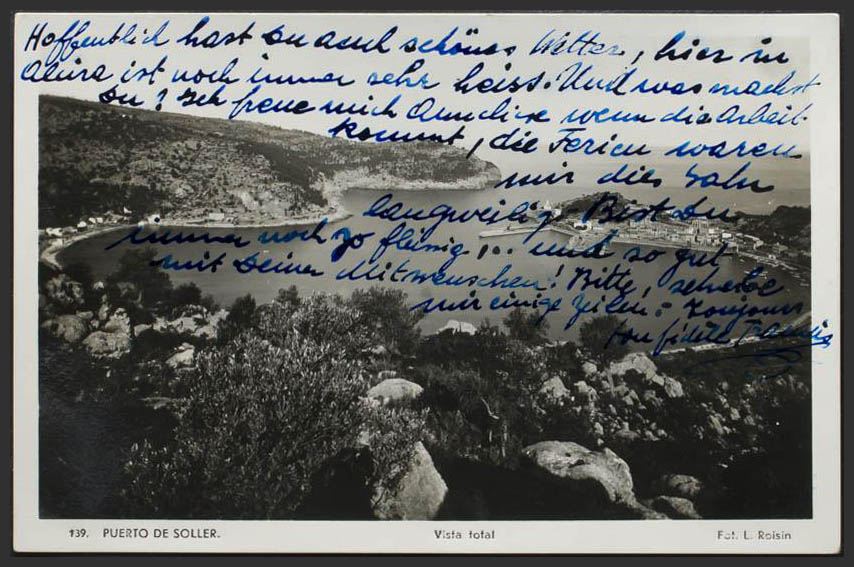 Hoffentlich hast Du auch schönes Wetter, hier in
ist noch immer sehr heiss. Und was machst
Du? Ich freue mich wenn die Arbeit
kommt, die Ferien waren
mir dies Jahr
langweilig. Bist Du
immer noch so fleissig ... und so gut
mit Deinen Mitmenschen! Bitte, schreibe
mir einige Zeilen - Toujours
ton fidèle
139. PUERTO DE SOLLER.
Vista total
Fot. L. Roisin